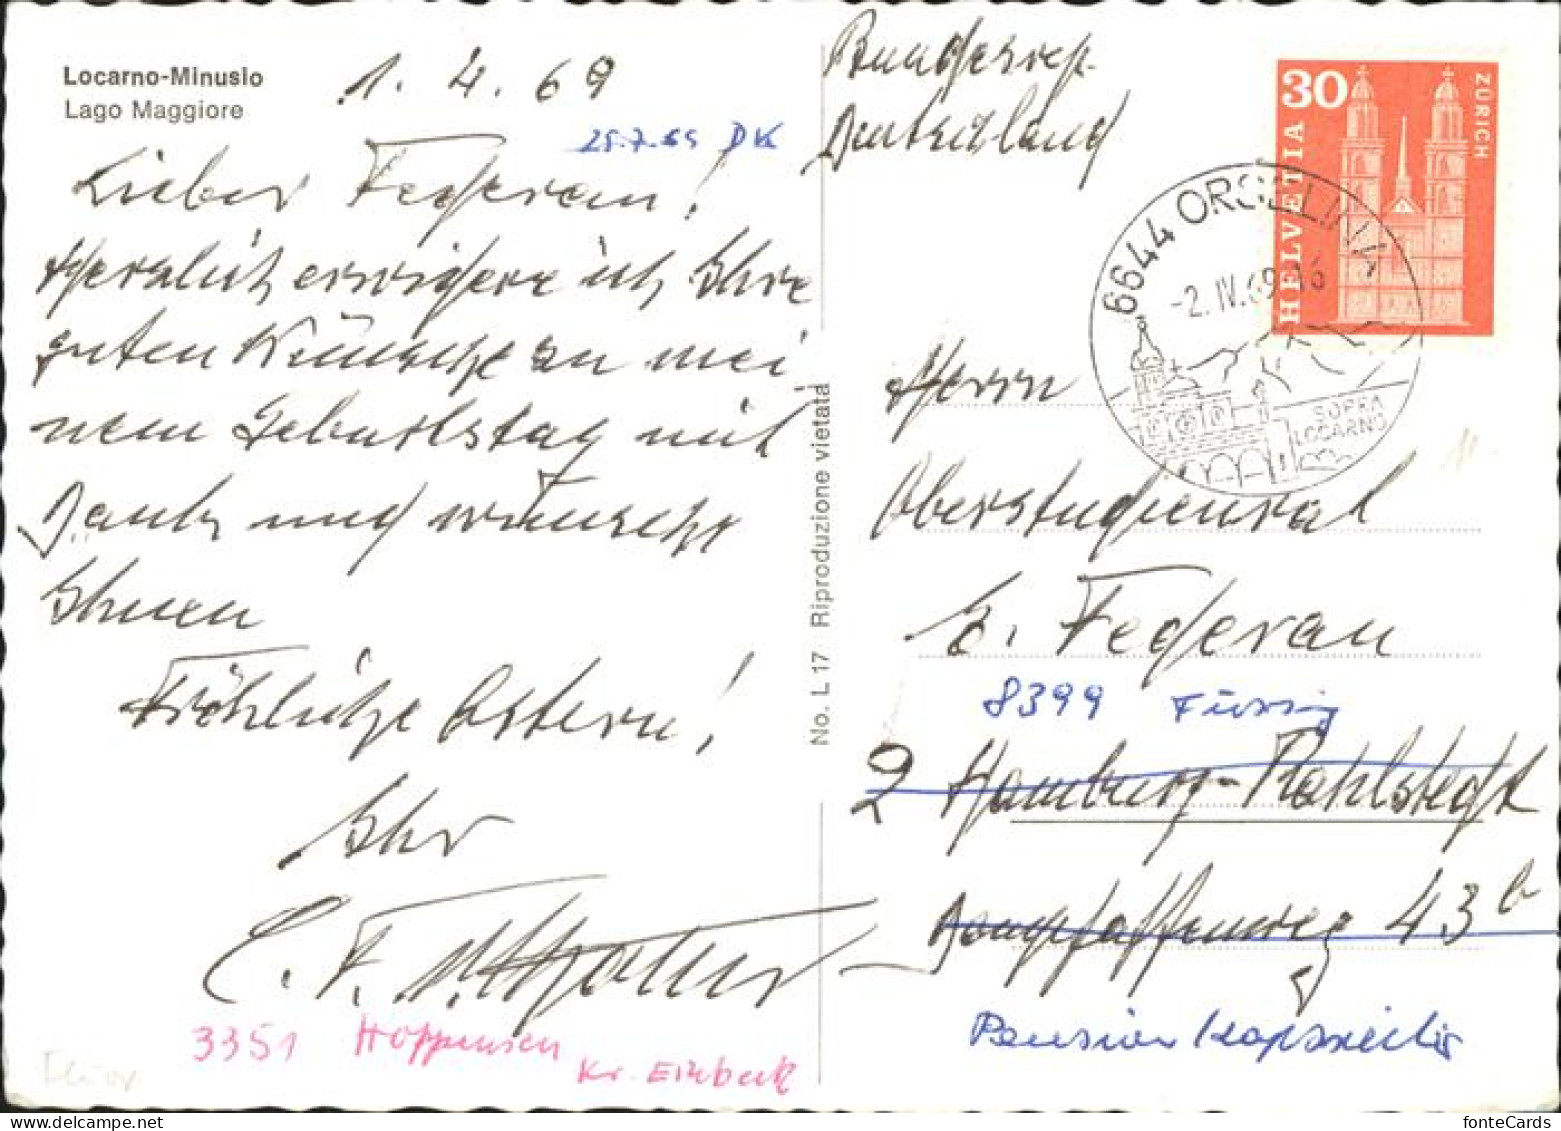 Locarno-Minusio
Lago Maggiore
1. 4. 69
DK
Lieber Federau!
Herzlich erwidere ich Ihre
guten Wünsche zu mei
nem Geburtstag mit
Dank und wünsche
Ihnen
Fröhliche Ostern!
Ihr
3351 Hoppensen
Kr. Einbeck
No. L 17 Riproduzione vietata
Bundesrep.
Deutschland
30
HELVETIA
ZÜRICH
6644 ORSELINA
-2.IV.69-16
SOPRA
LOCARNO
Herrn
Oberstudienrat
E. Federau
8399 Füssing
2 Hamburg-Rahlstedt
Dompfaffenweg 43 b
Pension
fonteCards